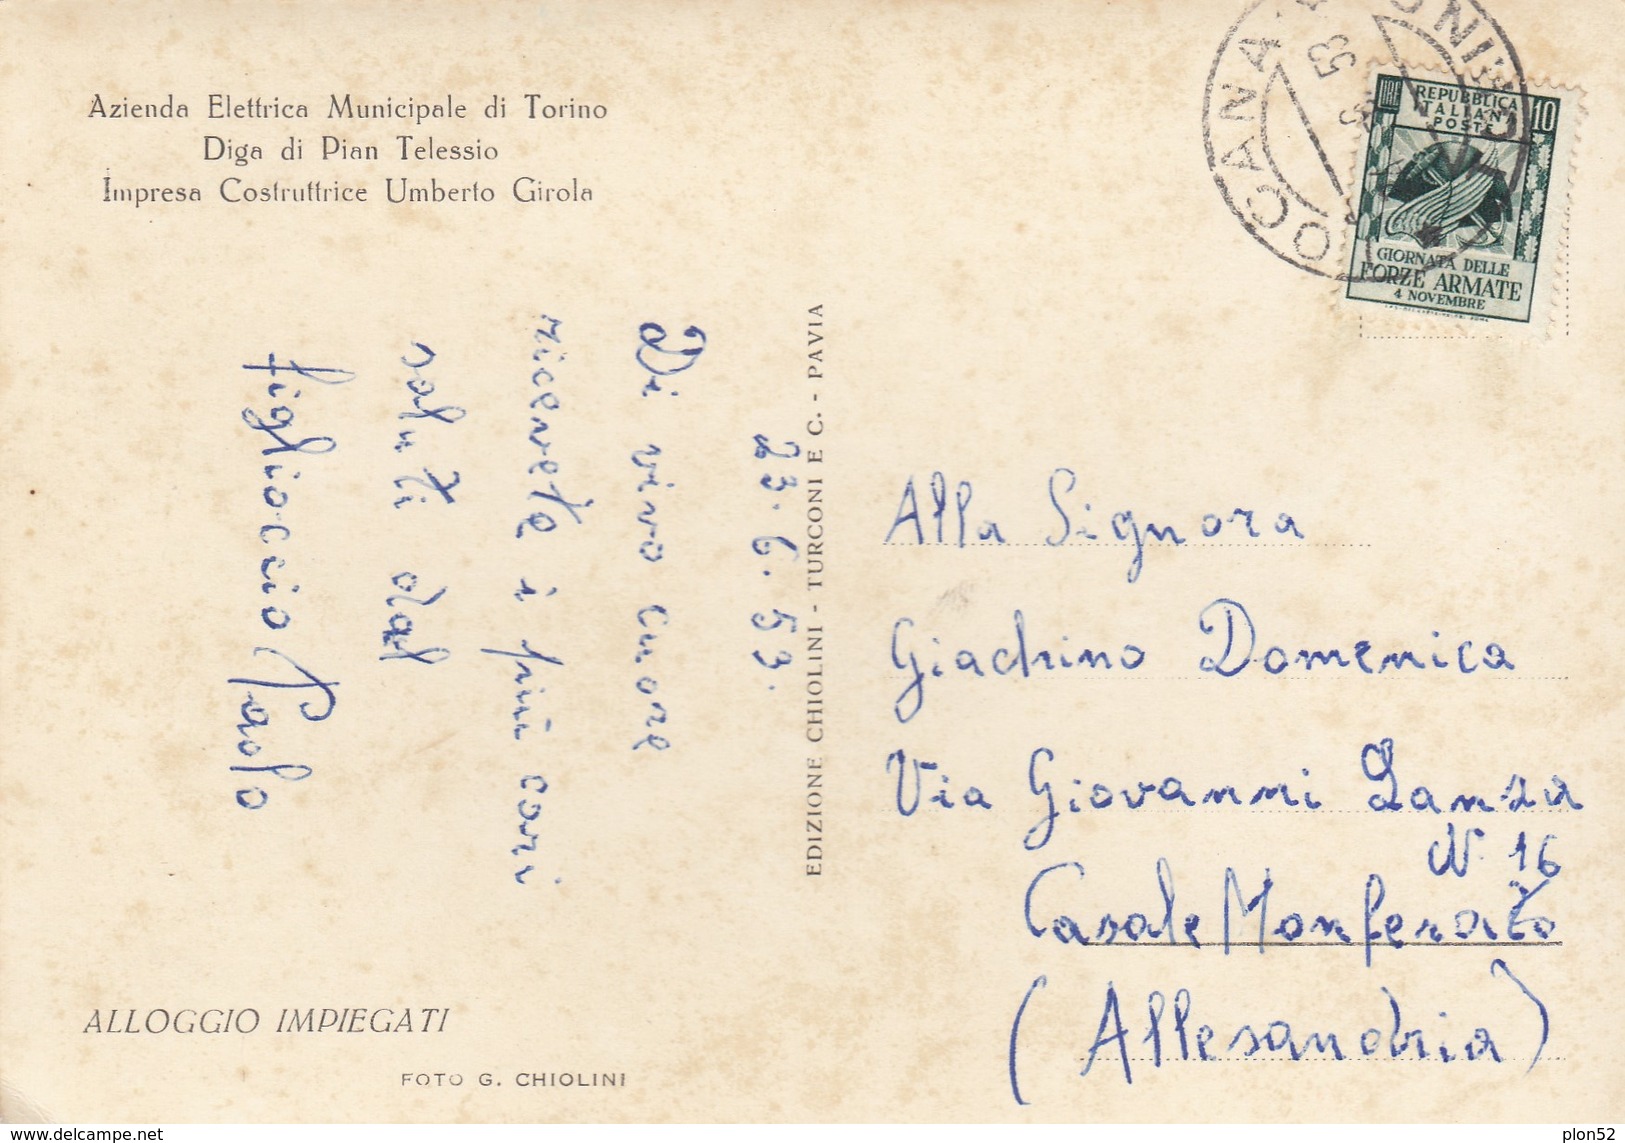 Azienda Elettrica Municipale di Torino
Diga di Pian Telessio
Impresa Costruttrice Umberto Girola
53
LIRE
10
REPUBBLICA
ITALIANA
POSTE
GIORNATA DELLE
FORZE ARMATE
4 NOVEMBRE
23.6.53.
Di vivo cuore
ricevete i più cari
saluti dal
figlioccio Paolo
EDIZIONE CHIOLINI - TURCONI E C. - PAVIA
Alla Signora
Giachino Domenica
Via Giovanni Lanza
N. 16
Casale Monferato
(Allesandria)
ALLOGGIO IMPIEGATI
FOTO G. CHIOLINI
www.delcampe.net
plon52